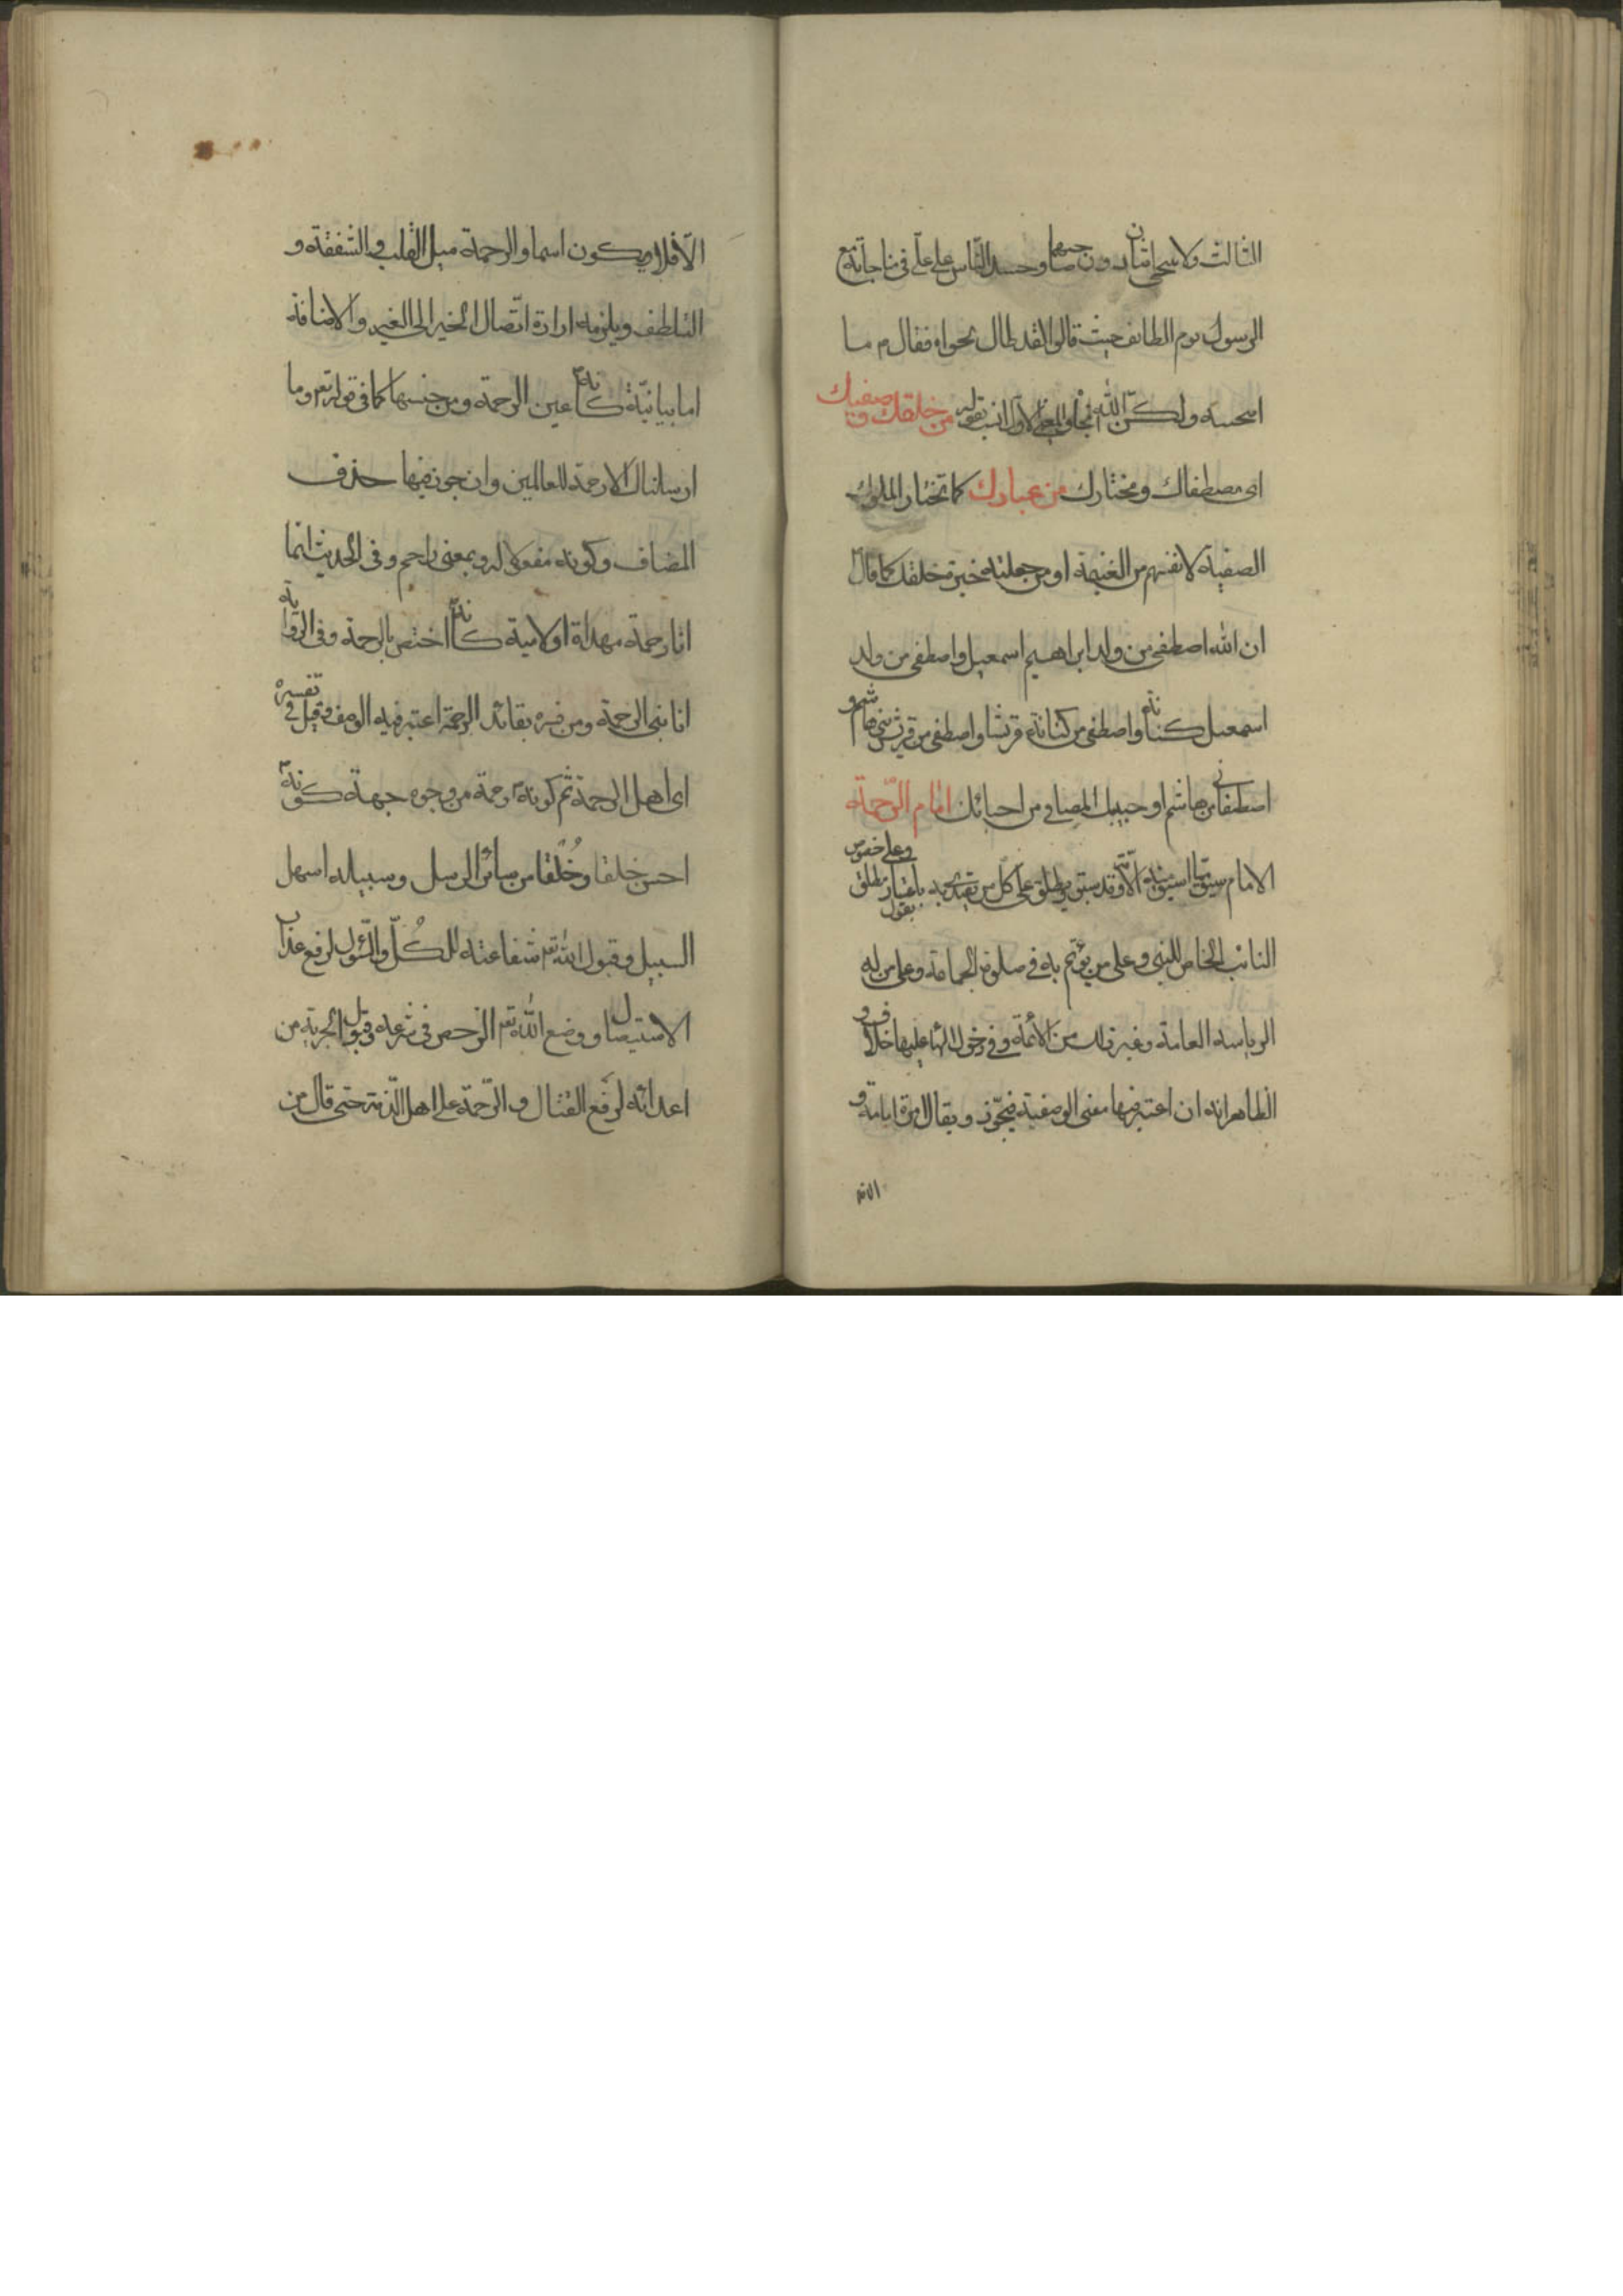 الثالث ولا يتناجى اثنان دون صاحبهما وحسد الناس على علي في مناجاته مع
الرسول يوم الطائف حيث قالوا لقد طال نجواه فقال م ما
انتجيته ولكنّ الله انتجاه والمعنى الاول انسب بقوله من خلقك وصفيك
اى مصطفاك ومختارك من عبادك كما تختار الملوك
الصفية لانفسهم من الغنيمة او من جعلته خيرة خلقك كما قال
ان الله اصطفى من ولد ابراهيم اسمعيل واصطفى من ولد
اسمعيل كنانة واصطفى من كنانة قريشا واصطفى من قريش بنى هاشم و
اصطفانى من هاشم او حبيبك المصافى من احبائك امام الرّحمة
الامام على كل من يقتدى به وعلى خصوص
النائب الخاص للنبى وعلى من يؤتم به فى صلوة الجماعة وعلى من له
الرياسة العامة وغير ذلك من الائمة وفى دخول التاء عليها خلاف و
الظاهر انه ان اعتبر فيها معنى الوصفية فيجوز ويقال امرة امامة و
الاقه
الّا فلا ويكون اسما والرحمة ميل القلب والشفقة و
التلطف ويلزمه ارادة اتّصال الخير الى الغير والاضافة
اما بيانيّة كانّه عين الرحمة ومن جنسها كما فى قوله تعم وما
ارسلناك الا رحمة للعالمين وان جوز فيها حذف
المضاف وكونه مفعولا له وبمعنى راحم وفى الحديث انما
انا رحمة مهداة او لامية كانّه اختص بالرحمة وفى الرواية
انا نبى الرحمة ومن فسره بقائد الرحمة اعتبر فيه الوصف وقيل فى تفسيره
اى اهل الرحمة ثم كونه رحمة من وجوه جهة كونه
احسن خلقا وخُلُقا من سائر الرسل وسبيله اسهل
السبيل وقبول الله تعم شفاعته للكُلّ والسّؤل لرفع عذاب
الاستيصال ووضع الله تعم الرخص فى شرعه وقبول الجزية من
اعدائه لرفع القتال والرّحمة على اهل الذّمة حتى قال من